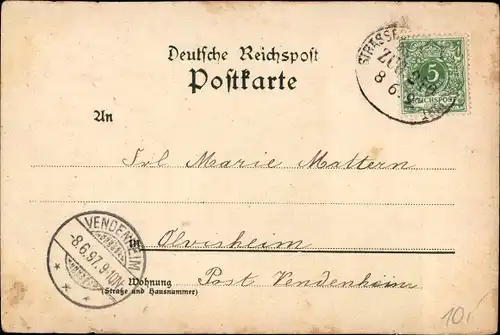 Deutsche Reichspost
Postkarte
STRASSB
ZUG
8 6
5
REICHSPOST
An
Frl Marie Mattern
in
Olvisheim
Wohnung
(Straße und Hausnummer)
Post Vendenheim
VENDENHEIM
-8.6.97.9-10N.
10,-